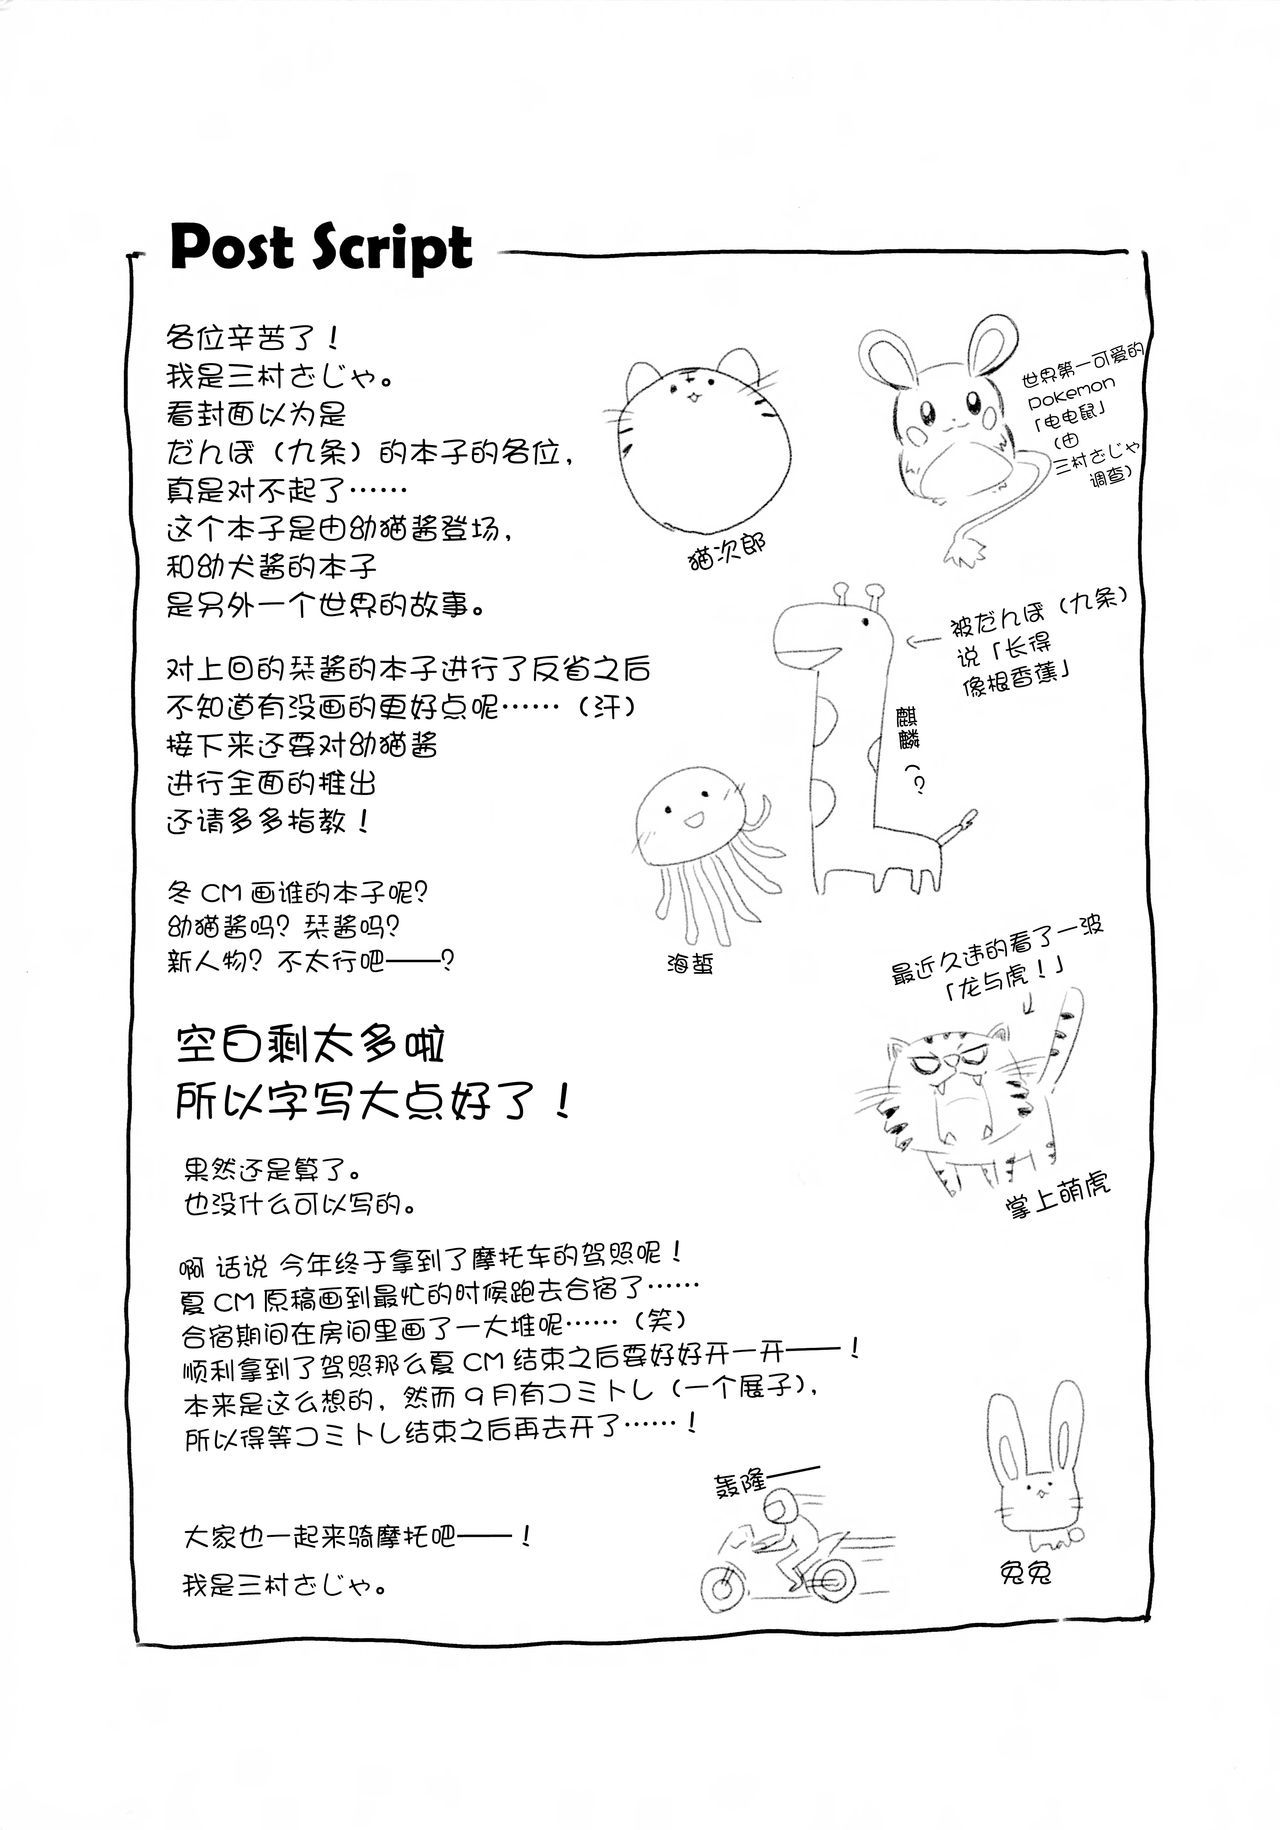 Post Script
各位辛苦了！
我是三村ざじゃ。
看封面以为是
だんぼ（九条）的本子的各位，
真是对不起了……
这个本子是由幼猫酱登场，
和幼犬酱的本子
是另外一个世界的故事。
对上回的栞酱的本子进行了反省之后
不知道有没画的更好点呢……（汗）
接下来还要对幼猫酱
进行全面的推出
还请多多指教！
冬CM画谁的本子呢？
幼猫酱吗？栞酱吗？
新人物？不太行吧——？
空白剩太多啦
所以字写大点好了！
果然还是算了。
也没什么可以写的。
啊 话说 今年终于拿到了摩托车的驾照呢！
夏CM原稿画到最忙的时候跑去合宿了……
合宿期间在房间里画了一大堆呢……（笑）
顺利拿到了驾照那么夏CM结束之后要好好开一开——！
本来是这么想的，然而9月有コミトレ（一个展子），
所以得等コミトレ结束之后再去开了……！
大家也一起来骑摩托吧——！
我是三村ざじゃ。
猫次郎
世界第一可爱的
pokemon
「电电鼠」
（由
三村ざじゃ
调查）
被だんぼ（九条）
说「长得
像根香蕉」
麒麟（？
海蜇
最近久违的看了一波
「龙与虎！」
掌上萌虎
轰隆——
兔兔